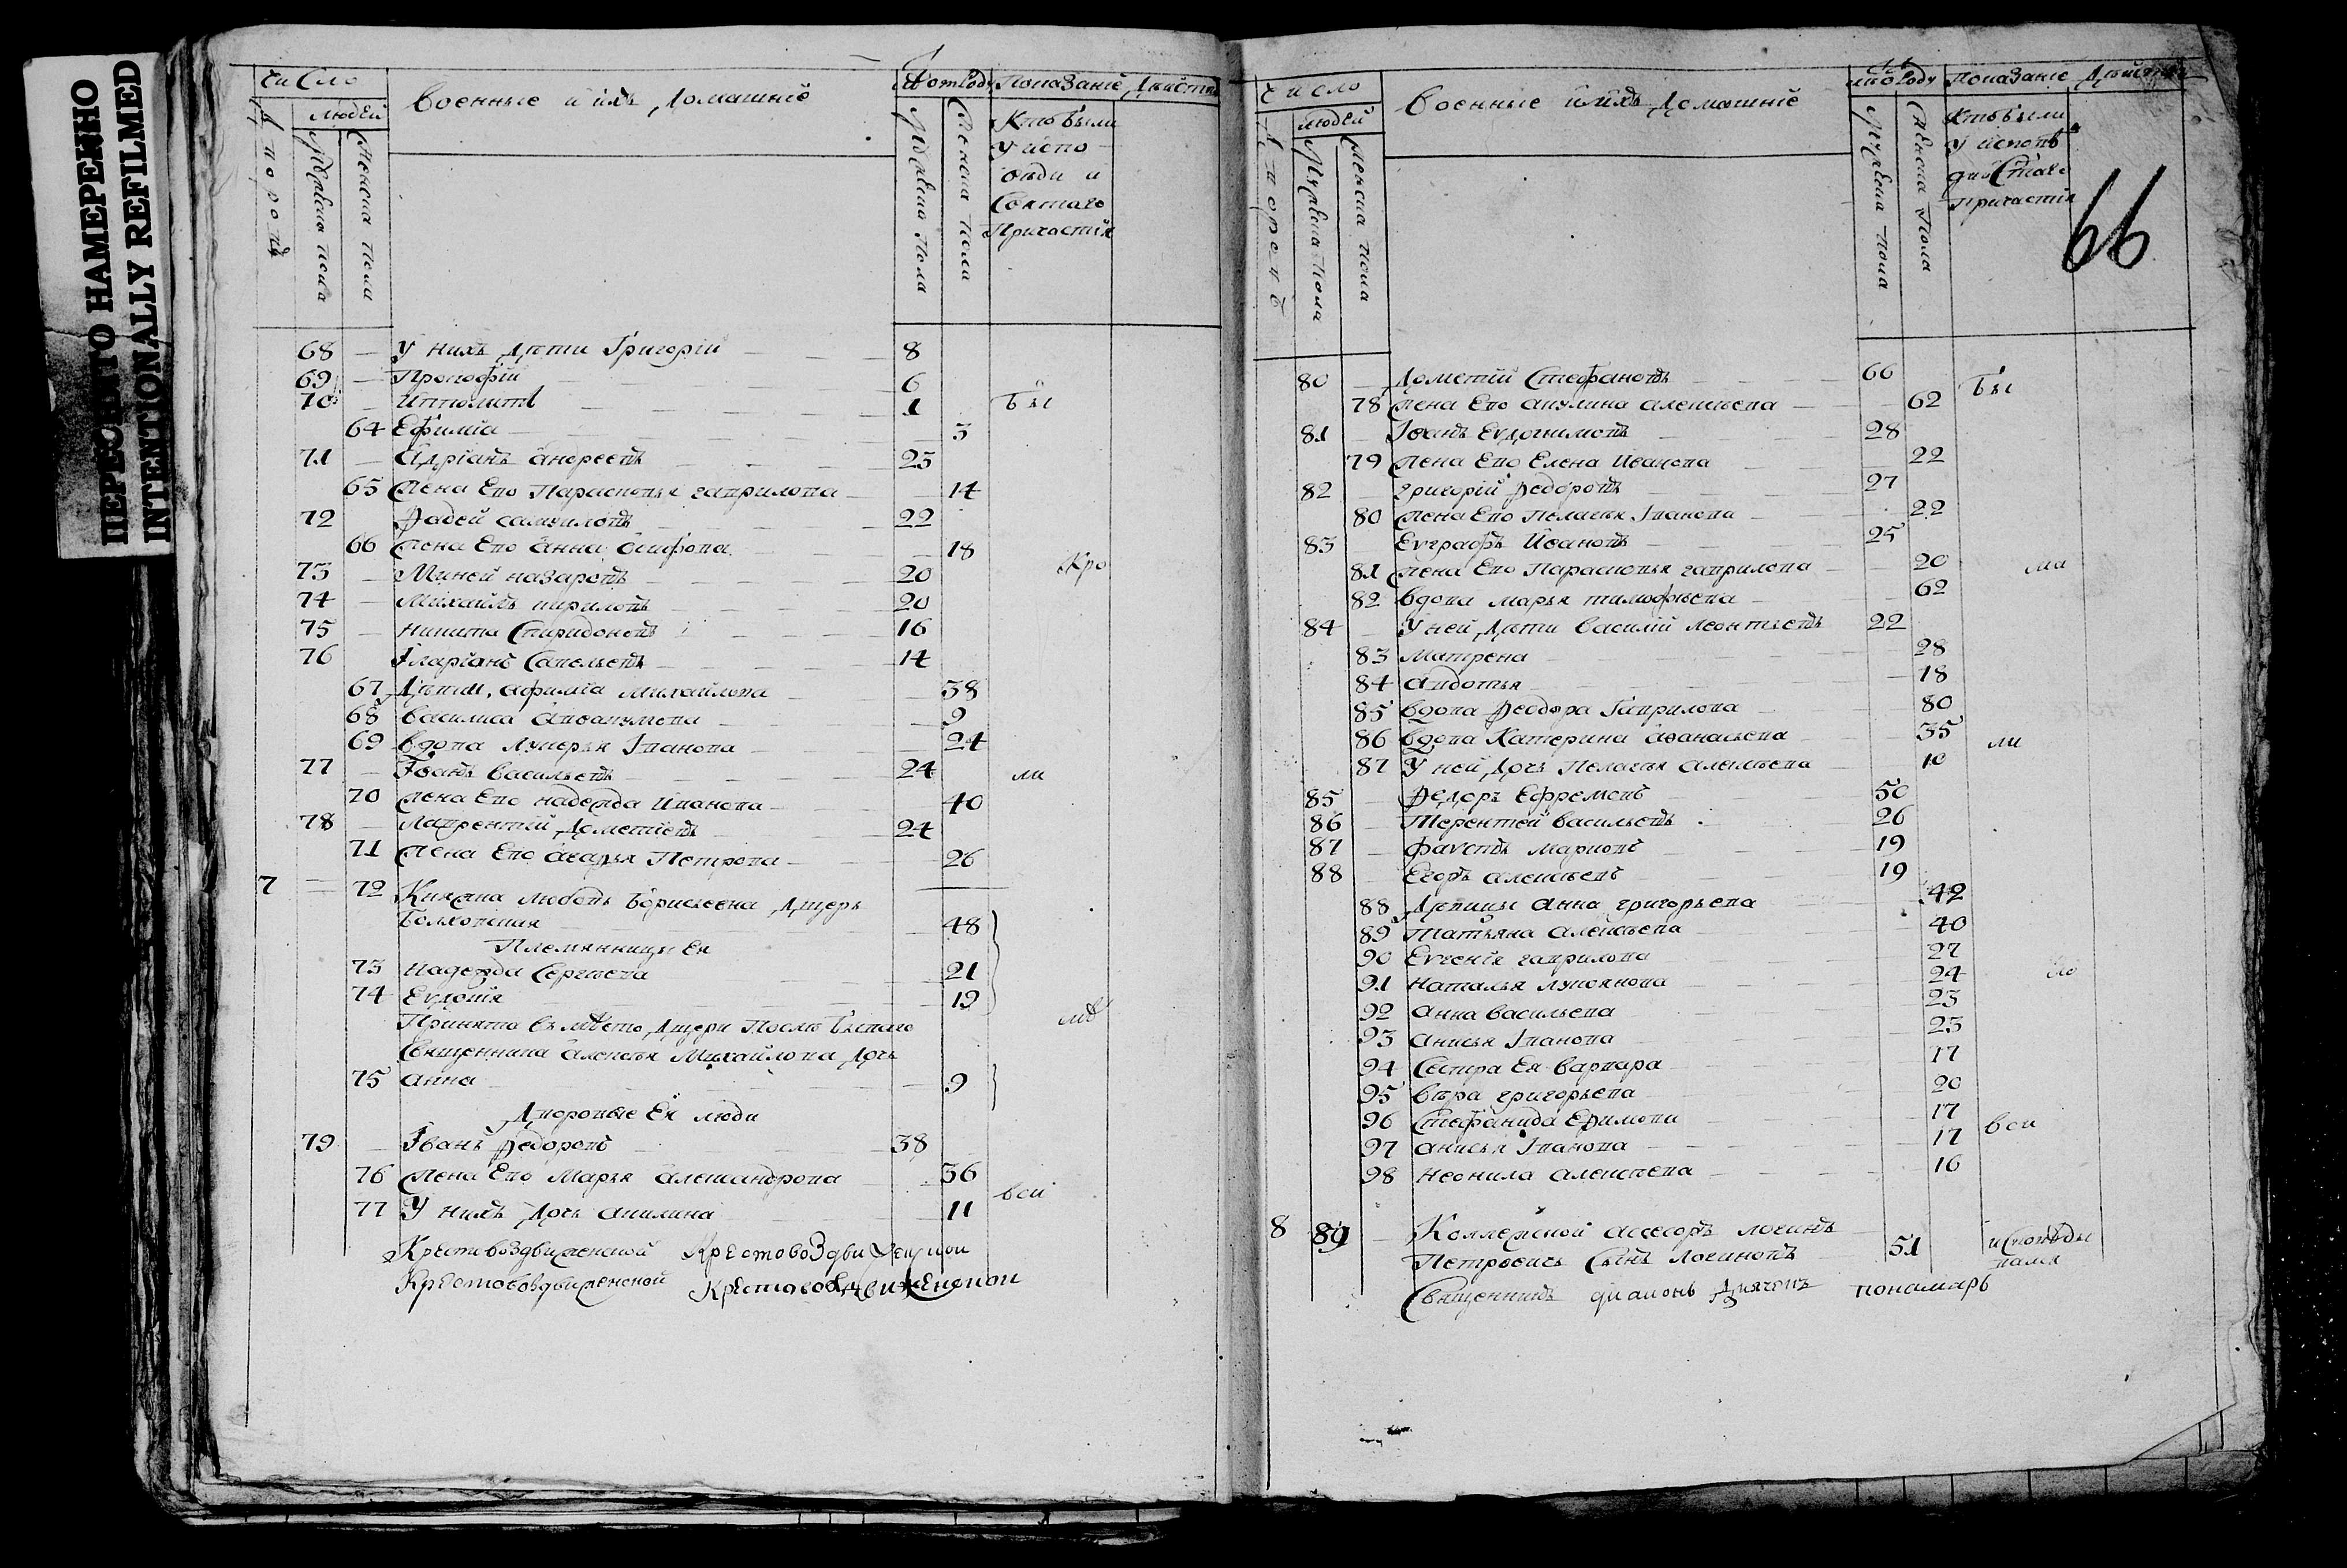 ПЕРЕСНЯТО НАМЕРЕННО
INTENTIONALLY REFILMED
Число
людей
Военные и ихъ Домашніе
Показаніе Действа
Кто были
у испо
веди и
Святаго
Причастія
мужеска пола
женска пола
мужеска пола
женска пола
68 У нихъ Дети Григорій 8
69 Прокофій 6
70 Ипполитъ 1 бы
64 Ефимія 3
71 Адріанъ Андреевъ 25
65 Жена Его Парасковья гаврилова 14
72 Фадей самуиловъ 22
66 Жена Его Анна Осифова 18
73 Миней назаровъ 20 Кро
74 Михаилъ кириловъ 20
75 Никита Спиридоновъ 16
76 Іларіанъ Савельевъ 14
67 афимiа Михайлова 38
68 василиса 9
69 вдова Лукерья Іванова 24
77 Іванъ Васильевъ 24 ли
70 Жена Его надежда Иванова 40
78 Лаврентій Дометіевъ 24
71 Жена Его Агафья Петрова 26
7 72 Княжна Любовь Борисьевна Дщерь
Волховская 48
Племянницы Ея
73 Надежда Сергеева 21
74 Евдокія 19
Принята въ место Дщери После бывшаго
Священника Алексея Михайлова Дочь
75 анна 9
Дворовые Ея люди
79 Іванъ Федоровъ 38
76 Жена Его Марья александрова 36
77 У нихъ Дочь акилина 11 вси
Крестовоздвиженской Крестовоздвиженской
Крестовоздвиженской Крестовоздвиженской
Число
людей
Военные и ихъ Домашніе
Показаніе Действа
Кто были
у испове
ди и Святаго
причастія
66
мужеска пола
женска пола
мужеска пола
женска пола
80 Дометій Стефановъ 66 бы
78 Жена Его акулина алексеева 62
81 Іванъ Евдокимовъ 28
79 Жена Его Елена Иванова 22
82 григорій Федоровъ 27
80 Жена Его Пелагея Іванова 22
83 Евграфъ Ивановъ 25
81 Жена Его Парасковья гаврилова 20
82 вдова марья тимофеева 62
84 У ней Дети Василій леонтьевъ 22
83 Матрена 28
84 авдотья 18
85 вдова Феодора Гаврилова 80
86 вдова Катерина аѳанасьева 35 ли
87 У ней Дочь Пелагея алексеева 10
85 Федоръ Ефремовъ 50
86 Терентей васильевъ 26
87 фавстъ марковъ 19
88 Егоръ алексеевъ 19
88 Девицы Анна григорьева 42
89 Татьяна алексеева 40
90 Евгенія гаврилова 27
91 Наталья лукоянова 24
92 анна васильева 23
93 анисья Іванова 23
94 Сестра Ея варвара 17
95 вера григорьева 20
96 Стефанида 17
97 анисья Іванова 17 вси
98 Неонила алексеева 16
8 89 Коллежской ассесоръ логинъ
Петровичь Сынъ логиновъ 51
Священникъ диаконъ Дьячекъ пономарь